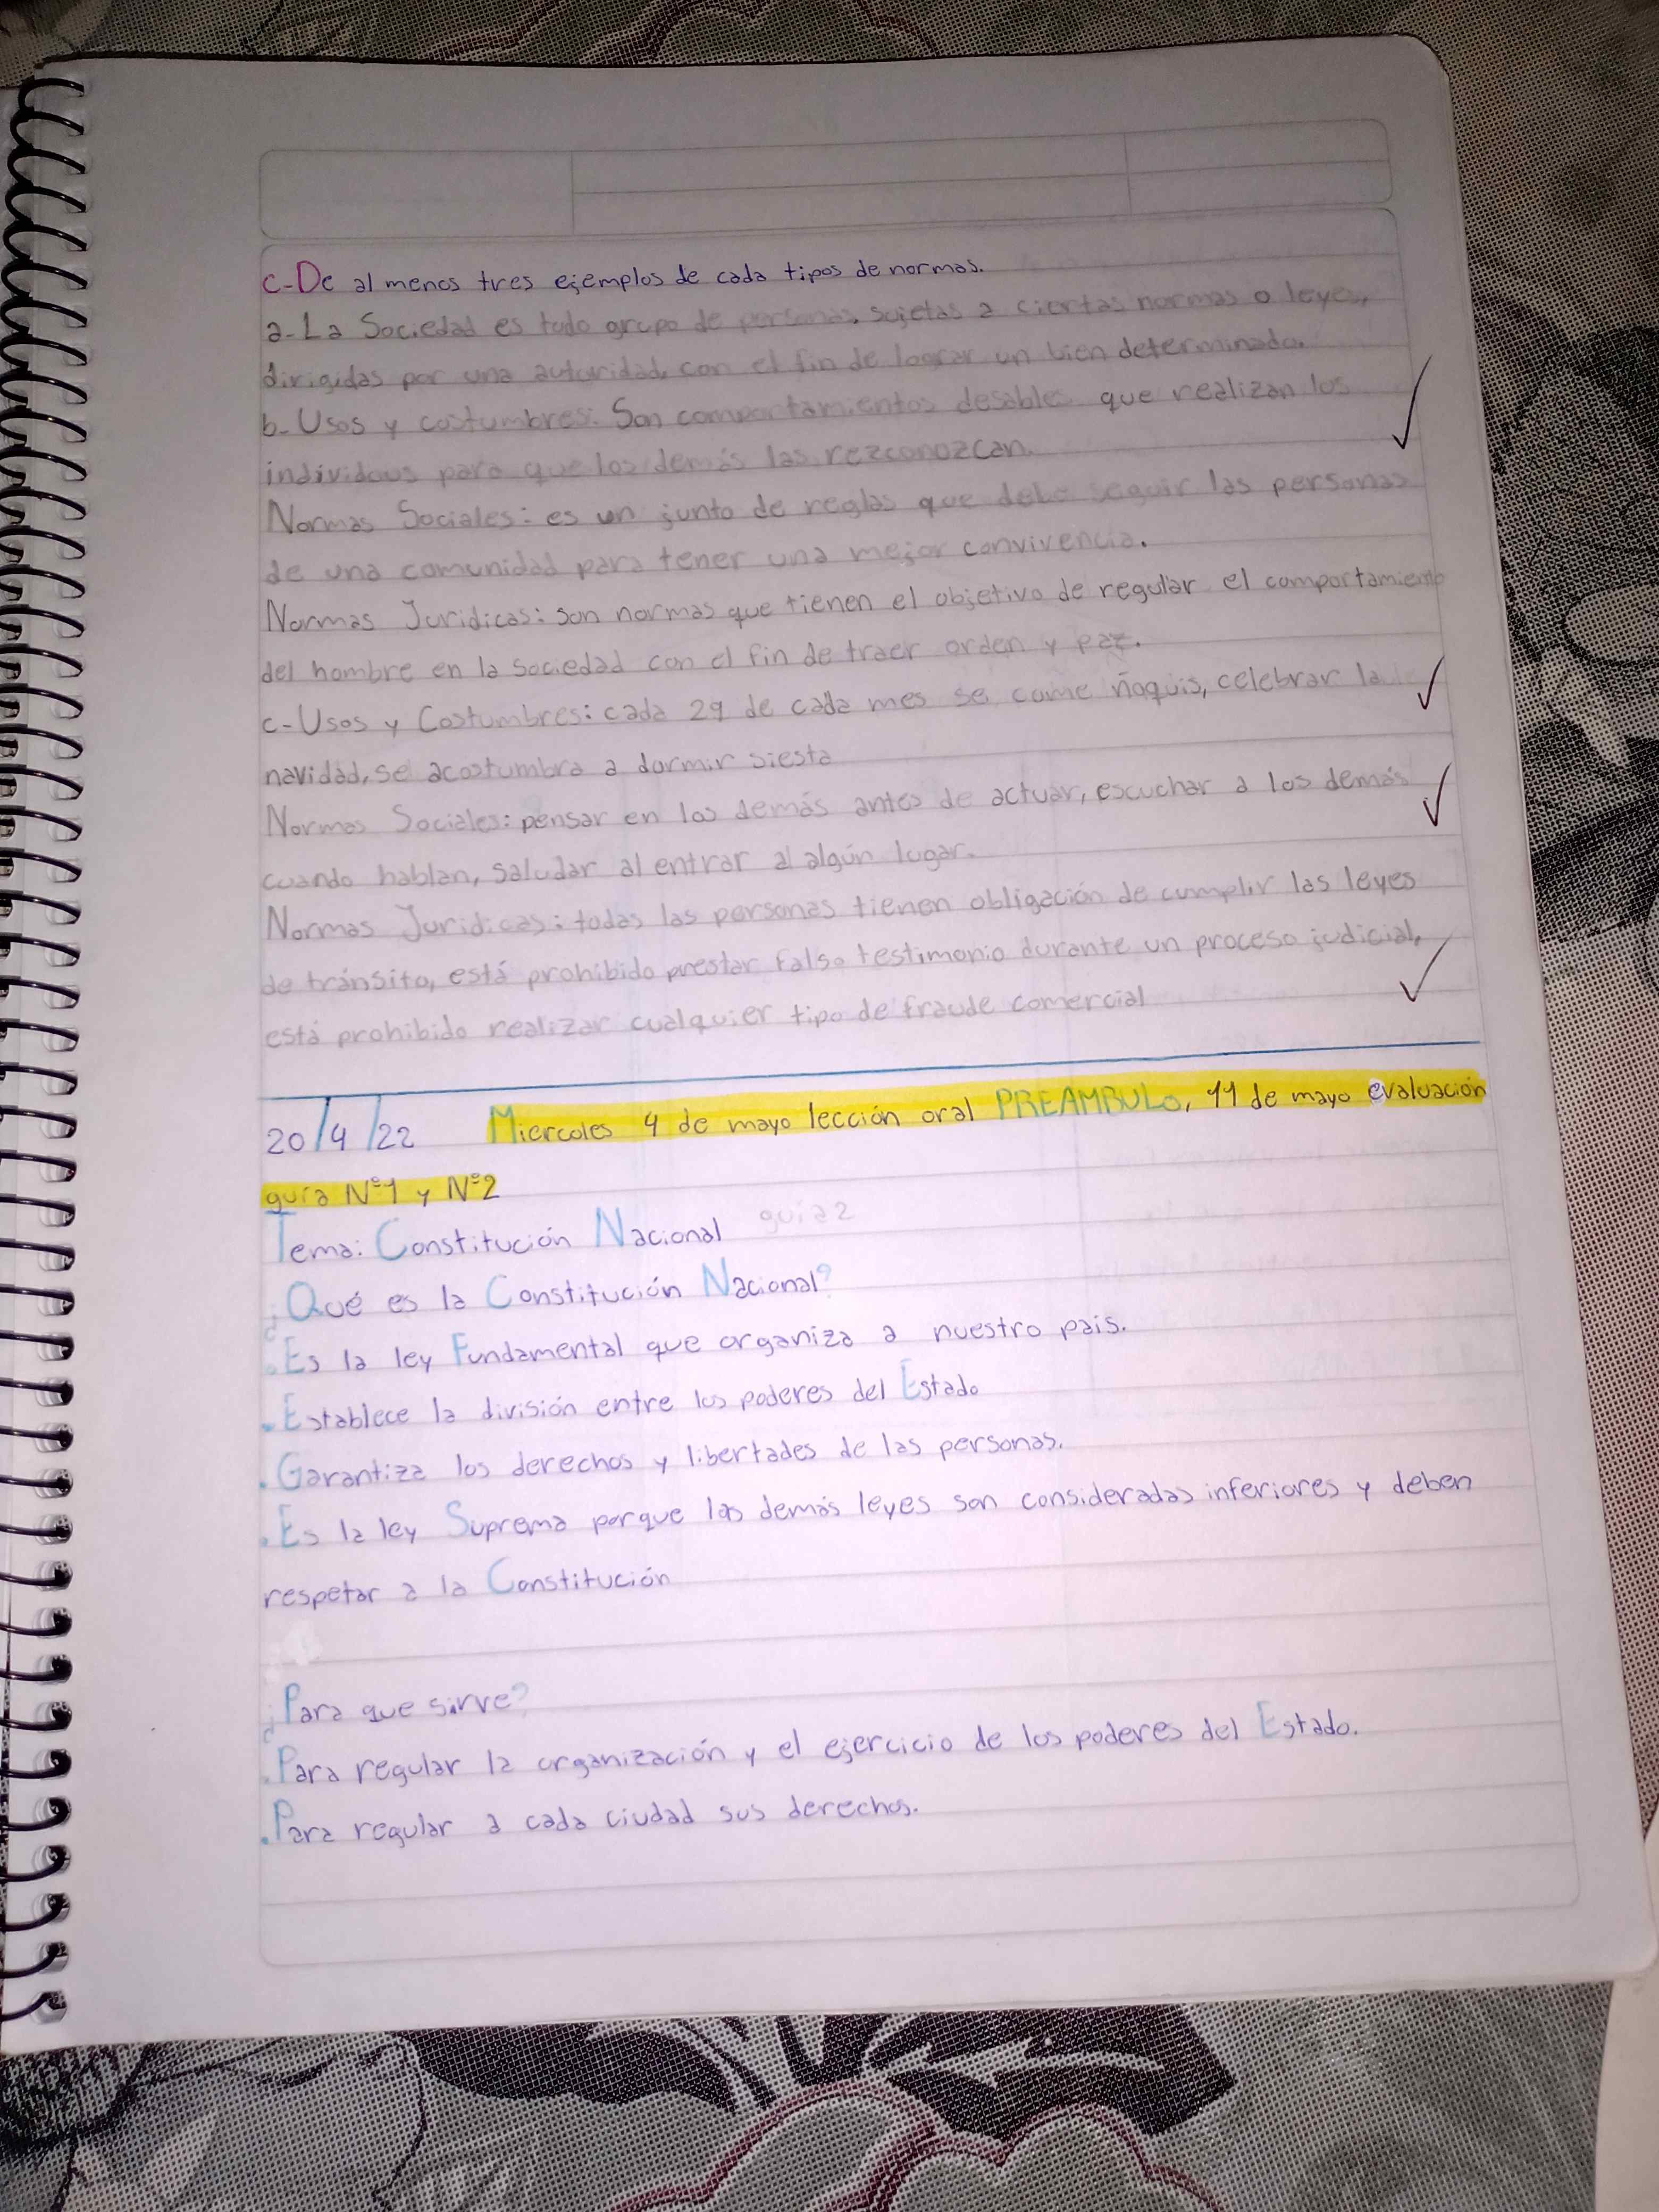 c-De al menos tres ejemplos de cada tipos de normas.
a-La Sociedad es todo grupo de personas sujetas a ciertas normas o leyes,
dirigidas por una autoridad, con el fin de lograr un bien determinado.
b-Usos y costumbres: Son comportamientos desables que realizan los
individous para que los demás las rezconozcan.
Normas Sociales: es un junto de reglas que debe seguir las personas
de una comunidad para tener una mejor convivencia.
Normas Juridicas: son normas que tienen el objetivo de regular el comportamiento
del hombre en la sociedad con el fin de traer orden y paz.
c-Usos y Costumbres: cada 29 de cada mes se come ñoquis, celebrar la
navidad, se acostumbra a dormir siesta
Normas Sociales: pensar en los demás antes de actuar, escuchar a los demás
cuando hablan, saludar al entrar al algún lugar.
Normas Juridicas: todas las personas tienen obligación de cumplir las leyes
de tránsito, está prohibido prestar falso testimonio durante un proceso judicial,
está prohibido realizar cualquier tipo de fraude comercial
20/4/22 Miercoles 4 de mayo lección oral PREAMBULO, 11 de mayo evaluación
guía N°1 y N°2
Tema: Constitución Nacional guia 2
¿Qué es la Constitución Nacional?
.Es la ley Fundamental que organiza a nuestro pais.
.Establece la división entre los poderes del Estado
.Garantiza los derechos y libertades de las personas.
.Es la ley Suprema porque las demás leyes son consideradas inferiores y deben
respetar a la Constitución
¿Para que sirve?
.Para regular la organización y el ejercicio de los poderes del Estado.
.Para regular a cada ciudad sus derechos.